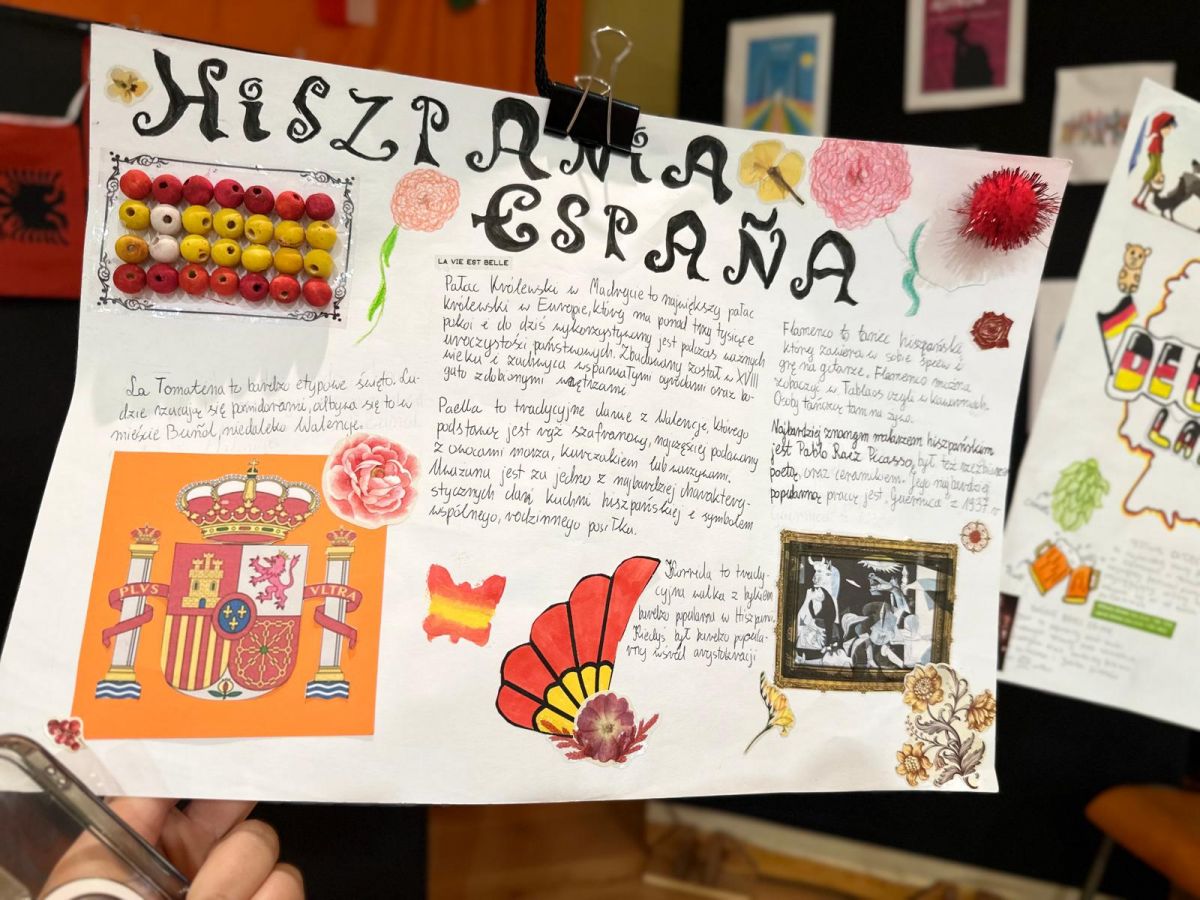 HiSZPANiA
ESPAÑA
LA VIE EST BELLE
La Tomatina to bardzo etypowe święto. Lu-
dzie rzucają się pomidorami, odbywa się to w
mieście Buñol, niedaleko Walencji.
PLVS VLTRA
Pałac Królewski w Madrycie to największy pałac
królewski w Europie, który ma ponad trzy tysiące
pokoi i do dziś wykorzystywany jest podczas ważnych
uroczystości państwowych. Zbudowany został w XVIII
wieku i zachwyca wspaniałymi ogrodami oraz bo-
gato zdobionymi wnętrzami.
Paella to tradycyjne danie z Walencje, którego
podstawą jest ryż szafranowy, najczęściej podawany
z owocami morza, kurczakiem lub warzywami.
Uważana jest za jedno z najbardziej charaktery-
stycznych dań kuchni hiszpańskiej i symbolem
wspólnego, rodzinnego posiłku.
Korrida to trady-
cyjna walka z bykiem
bardzo popularna w Hiszpanii.
Kiedyś był bardzo popula-
rny wśród arystokracji
Flamenco to taniec hiszpański
który zawiera w sobie śpiew i
grę na gitarze. Flamenco można
zobaczyć w Tablaos czyli w kawiarniach.
Osoby tańczą tam na żywo.
Najbardziej znanym malarzem hiszpańskim
jest Pablo Ruiz Picasso, był też rzeźbiarzem
poetą, oraz ceramikiem. Jego najbardziej
popularną pracą jest "Guernica" z 1937 r